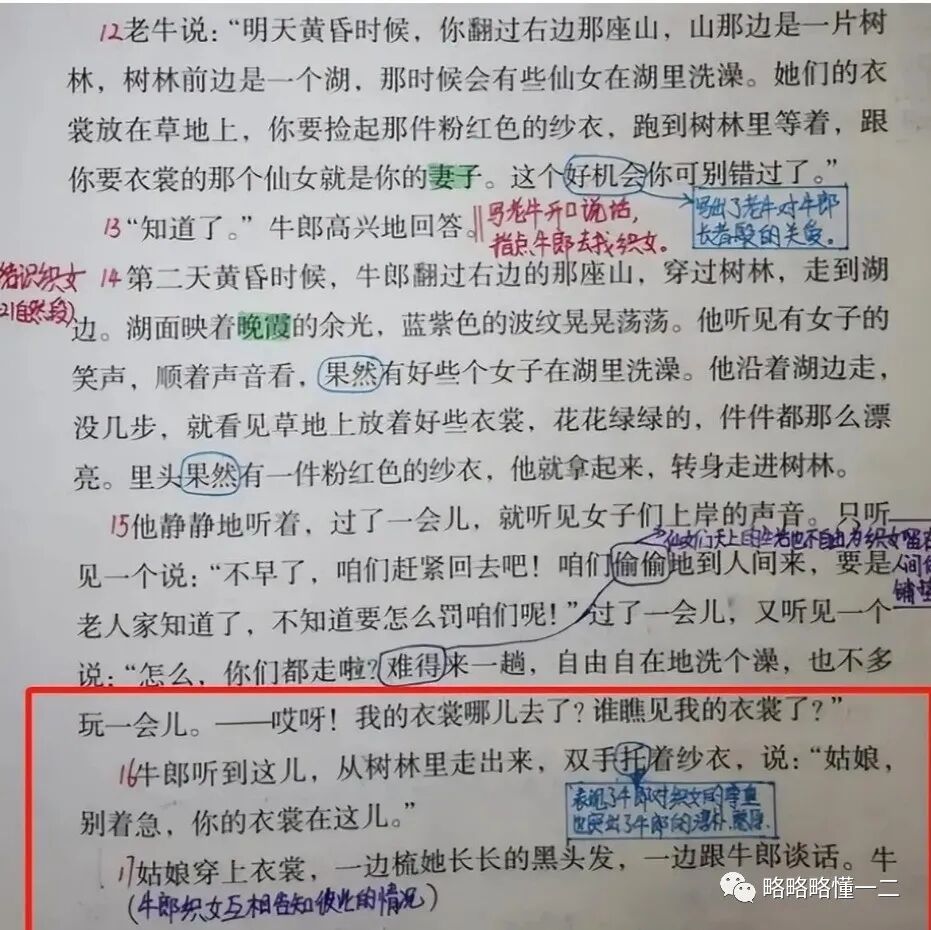 12老牛说：“明天黄昏时候，你翻过右边那座山，山那边是一片树
林，树林前边是一个湖，那时候会有些仙女在湖里洗澡。她们的衣
裳放在草地上，你要捡起那件粉红色的纱衣，跑到树林里等着，跟
你要衣裳的那个仙女就是你的妻子。这个好机会你可别错过了。”
写出了老牛对牛郎
长者般的关爱。
13“知道了。”牛郎高兴地回答。
写老牛开口说话，
指点牛郎去找织女。
结识织女
21自然段)
14第二天黄昏时候，牛郎翻过右边的那座山，穿过树林，走到湖
边。湖面映着晚霞的余光，蓝紫色的波纹晃晃荡荡。他听见有女子的
笑声，顺着声音看，果然有好些个女子在湖里洗澡。他沿着湖边走，
没几步，就看见草地上放着好些衣裳，花花绿绿的，件件都那么漂
亮。里头果然有一件粉红色的纱衣，他就拿起来，转身走进树林。
15他静静地听着，过了一会儿，就听见女子们上岸的声音。只听
仙女们天上的生活也不自由为织女留在
人间做
铺垫
见一个说：“不早了，咱们赶紧回去吧！咱们偷偷地到人间来，要是
老人家知道了，不知道要怎么罚咱们呢！”过了一会儿，又听见一个
说：“怎么，你们都走啦？难得来一趟，自由自在地洗个澡，也不多
玩一会儿。——哎呀！我的衣裳哪儿去了？谁瞧见我的衣裳了？”
16牛郎听到这儿，从树林里走出来，双手托着纱衣，说：“姑娘，
别着急，你的衣裳在这儿。”
表现了牛郎对织女的尊重
也突出了牛郎的淳朴、憨厚.
17姑娘穿上衣裳，一边梳她长长的黑头发，一边跟牛郎谈话。牛
(牛郎织女互相告知彼此的情况)
略略略懂一二